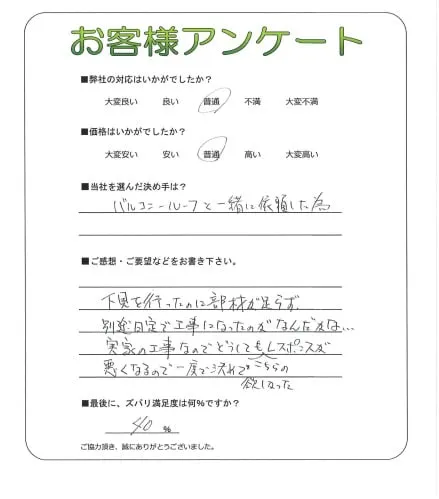 お客様アンケート
■弊社の対応はいかがでしたか？
大変良い 良い 普通 不満 大変不満
■価格はいかがでしたか？
大変安い 安い 普通 高い 大変高い
■当社を選んだ決め手は？
バルコニールーフと一緒に依頼した為
■ご感想・ご要望などをお書き下さい。
下見を行ったのに部材が足らず、
別途日定で工事になったのがなんだかな…
実家の工事なのでどうしてもレスポンスが
悪くなるので一度で決れて こちらの
欲しなった
■最後に、ズバリ満足度は何％ですか？
40 ％
ご協力頂き、誠にありがとうございました。